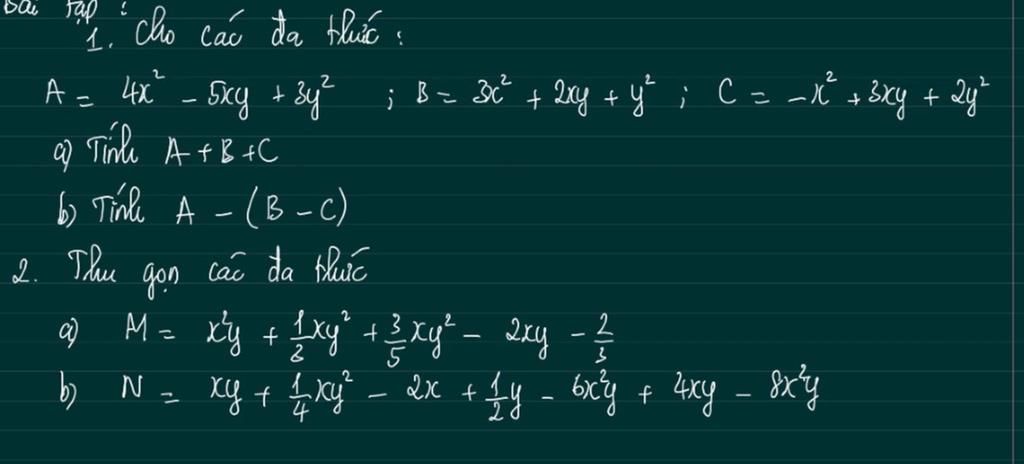 Bài tập :
1. Cho các đa thức :
A = 4x² - 5xy + 3y² ; B = 3x² + 2xy + y² ; C = -x² + 3xy + 2y²
a) Tính A + B + C
b) Tính A - (B - C)
2. Thu gọn các đa thức
a) M = x²y + 1/3 xy² + 3/5 xy² - 2xy - 2/3
b) N = xy + 1/4 xy² - 2x + 1/2 y - 6x²y + 4xy - 8x²y